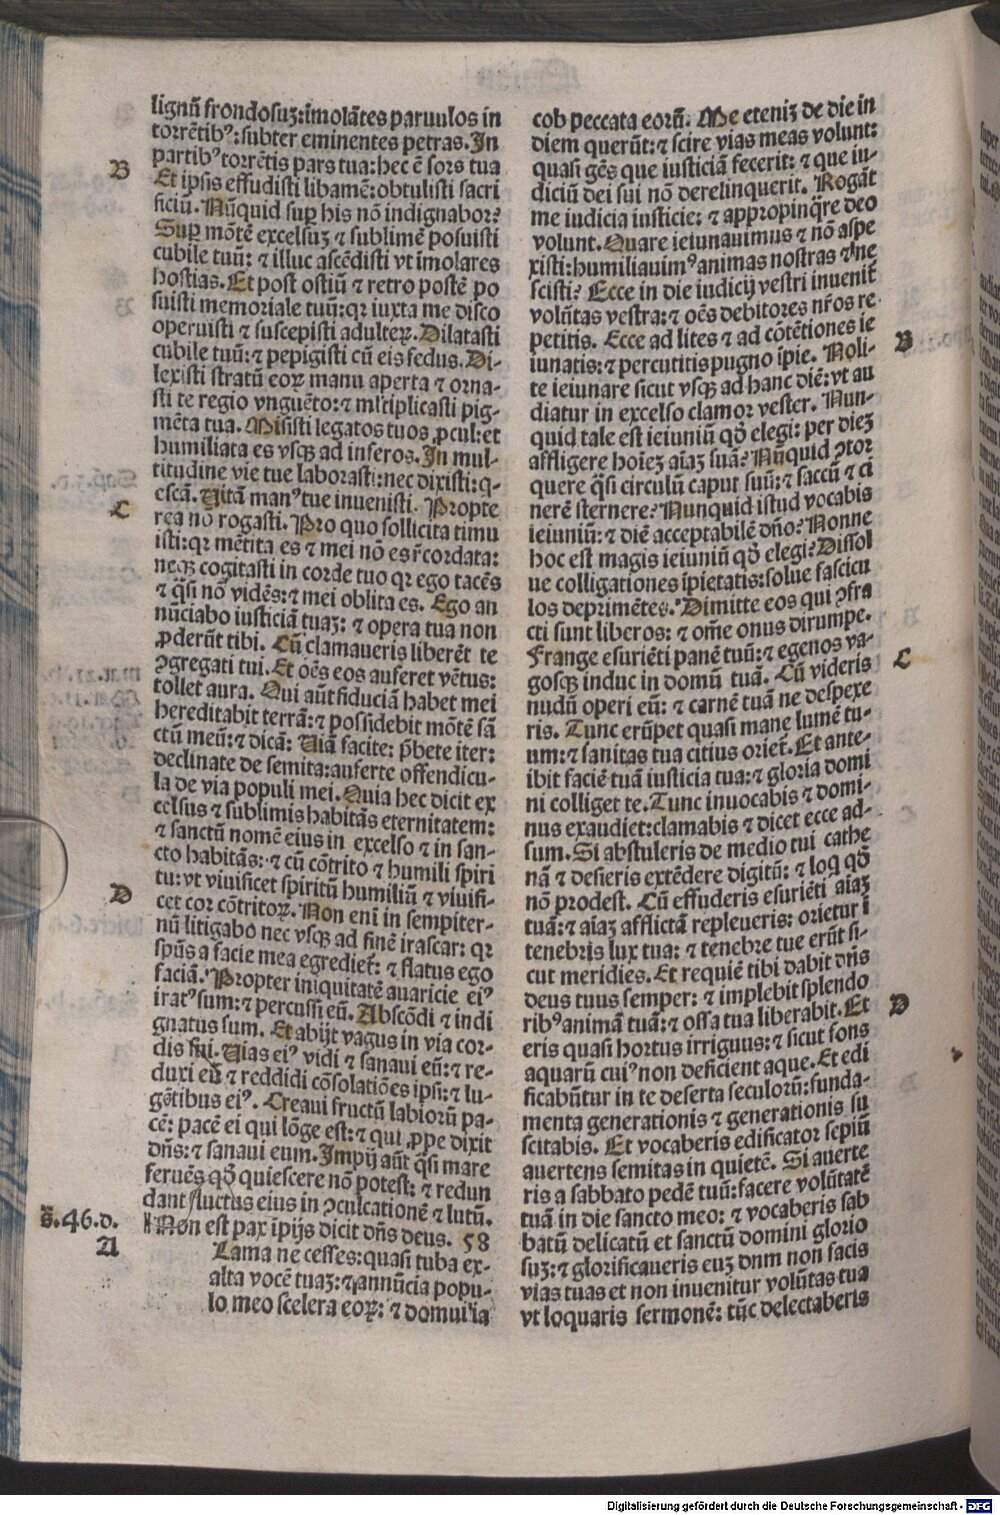 lignū frondosuȝ:īmolātes paruulos in
torrētibꝰ:subter eminentes petras. In
partibꝰ torrētis pars tua:hec ē sors tua
B
Et ipsis effudisti libamē:obtulisti sacri
ficiū. Nūquid suꝑ his nō indignabor?
Suꝑ mōtē excelsuȝ ⁊ sublimē posuisti
cubile tuū: ⁊ illuc ascēdisti vt īmolares
hostias. Et post ostiū ⁊ retro postē po
suisti memoriale tuū:qꝛ iuxta me disco
operuisti ⁊ suscepisti adulteꝝ. Dilatasti
cubile tuū:⁊ pepigisti cū eis fedus. Di-
lexisti stratū eoꝝ manu aperta ⁊ orna-
sti te regio vnguēto:⁊ ml̄tiplicasti pig-
mēta tua. Misisti legatos tuos ꝓcul:et
humiliata es vsqꝫ ad inferos. In mul-
titudine vie tue laborasti:nec dixisti:q-
escā. Uitā manꝰ tue inuenisti. Propte
C
rea nō rogasti. Pro quo sollicita timu
isti:qꝛ mētita es ⁊ mei nō es r̄cordata:
neqꝫ cogitasti in corde tuo qꝛ ego tacēs
⁊ q̄si nō vidēs:⁊ mei oblita es. Ego an
nūciabo iusticiā tuaȝ: ⁊ opera tua non
ꝓderūt tibi. Cū clamaueris liberēt te
ꝯgregati tui. Et oēs eos auferet vētus:
tollet aura. Qui aūt fiduciā habet mei
hereditabit terrā:⁊ possidebit mōtē sā
ctū meū:⁊ dicā: Uiā facite: p̄bete iter:
declinate de semita:auferte offendicu-
la de via populi mei. Quia hec dicit ex
celsus ⁊ sublimis habitās eternitatem:
⁊ sanctū nomē eius in excelso ⁊ in san-
cto habitās: ⁊ cū cōtrito ⁊ humili spiri
D
tu:vt viuificet spiritū humiliū ⁊ viuifi-
cet cor cōtritoꝝ. Non enī in sempiter-
nū litigabo nec vsqꝫ ad finē irascar: qꝛ
spūs a facie mea egrediet̄: ⁊ flatus ego
faciā. Propter iniquitatē auaricie eiꝰ
iratꝰ sum:⁊ percussi eū. Abscōdi ⁊ indi
gnatus sum. Et abijt vagus in via cor-
dis sui. Uias eiꝰ vidi ⁊ sanaui eū:⁊ re-
duxi eū ⁊ reddidi cōsolatiōes ipsi:⁊ lu-
gētibus eiꝰ. Creaui fructū labiorū pa-
cē: pacē ei qui lōge est:⁊ qui ꝓpe dixit
dn̄s:⁊ sanaui eum. Impij aūt q̄si mare
feruēs qð quiescere nō potest: ⁊ redun
dant fluctus eius in ꝯculcationē ⁊ lutū.
s̄.46.d.
Non est pax īpijs dicit dn̄s deus. 58
A
Lama ne cesses:quasi tuba ex-
alta vocē tuaȝ:⁊ annūcia popu-
lo meo scelera eoꝝ: ⁊ domui ia
cob peccata eorū. Me eteniȝ de die in
diem querūt:⁊ scire vias meas volunt:
quasi gēs que iusticiā fecerit: ⁊ que iu-
diciū dei sui nō derelinquerit. Rogāt
me iudicia iusticie: ⁊ appropinq̄re deo
volunt. Quare ieiunauimus ⁊ nō aspe
xisti:humiliauimꝰ animas nostras ⁊ ne
scisti? Ecce in die iudicij vestri inuenit̄
volūtas vestra:⁊ oēs debitores nr̄os re
petitis. Ecce ad lites ⁊ ad cōtētiones ie
B
iunatis:⁊ percutitis pugno īpie. Noli-
te ieiunare sicut vsqꝫ ad hanc diē:vt au
diatur in excelso clamor vester. Nun-
quid tale est ieiuniū qð elegi: per dieȝ
affligere hoīeȝ aīaȝ suā? Nūquid ꝯtor
quere q̄si circulū caput suū:⁊ saccū ⁊ ci
nerē sternere? Nunquid istud vocabis
ieiuniū:⁊ diē acceptabilē dn̄o? Nonne
hoc est magis ieiuniū qð elegi? Dissol
ue colligationes īpietatis:solue fascicu
los deprimētes. Dimitte eos qui ꝯfra
cti sunt liberos: ⁊ om̄e onus dirumpe.
Frange esuriēti panē tuū:⁊ egenos va-
C
gosqꝫ induc in domū tuā. Cū videris
nudū operi eū: ⁊ carnē tuā ne despexe
ris. Tunc erūpet quasi mane lumē tu-
um:⁊ sanitas tua citius oriet̄. Et ante-
ibit faciē tuā iusticia tua:⁊ gloria domi
ni colliget te. Tunc inuocabis ⁊ domi-
nus exaudiet:clamabis ⁊ dicet ecce ad-
sum. Si abstuleris de medio tui cathe
nā ⁊ desieris extēdere digitū: ⁊ loq qð
nō prodest. Cū effuderis esuriēti aīaȝ
tuā:⁊ aīaȝ afflictā repleueris: orietur ī
tenebris lux tua: ⁊ tenebre tue erūt si-
cut meridies. Et requiē tibi dabit dn̄s
deus tuus semper: ⁊ implebit splendo
D
ribꝰ animā tuā:⁊ ossa tua liberabit. Et
eris quasi hortus irriguus:⁊ sicut fons
aquarū cuiꝰ non deficient aque. Et edi
ficabūntur in te deserta seculorū:funda-
menta generationis ⁊ generationis su
scitabis. Et vocaberis edificator sepiū
auertens semitas in quietē. Si auerte
ris a sabbato pedē tuū:facere volūtatē
tuā in die sancto meo: ⁊ vocaberis sab
batū delicatū et sanctū domini glorio
suȝ:⁊ glorificaueris euȝ dnm non facis
vias tuas et non inuenitur volūtas tua
vt loquaris sermonē: tūc delectaberis
Digitalisierung gefördert durch die Deutsche Forschungsgemeinschaft - DFG